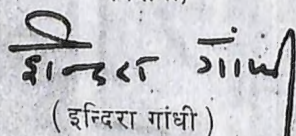 इन्दिरा गांधी
( इन्दिरा गांधी )